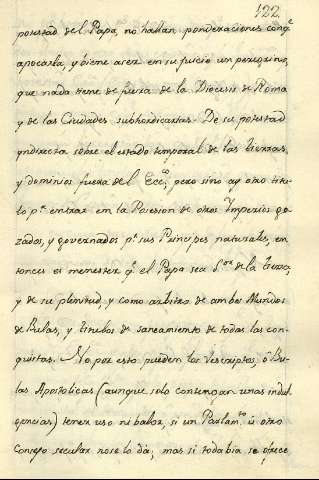 122.
potestad del Papa, no hallan ponderaciones con q.e
apocarla, y viene a ser en su juicio un peregrino,
que nada tiene de fuera de la Diocesis de Roma
y de las Ciudades subhordicarias. De su potestad
yndirecta sobre el estado temporal de las tierras,
y dominios fuera del Ecc.co pero sino ay otro titu-
lo p.a entrar en la Posesion de otros Imperios go-
zados, y governados p.r sus Principes naturales, en-
tonces es menester q.e el Papa sea S.or de la tierra,
y de su plenitud, y como arbitro de ambos Mundos
de Bulas, y titulos de saneamiento de todas las con-
quistas. No por esto pueden los Rescriptos, ô Bu-
las Apostolicas (aunque solo contengan unas indul-
gencias) tener uso ni balor, si un Parlam.to ù otro
Consejo secular no se lo dà; mas si todabia se ofrece